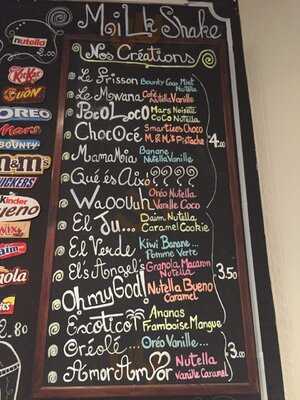 MiLk Shake
nutella
Nos Créations
KitKat
LION
OREO
Mars
BOUNTY
m&m's
SNICKERS
KINDER
Bueno
TWIX
Daim
nutella
2.80
Le Frisson Bounty Coco Mint
Nutella
Le Mwana Café
Nutella Vanille
PocoLoco Mars Noisette
CoCo Nutella
ChocOcé Smarties Choco
M. & M.'s Pistache
4.00
MamaMia Banane
Nutella Vanille
Qué és Aixo????
Waoouuh Oréo Nutella
Vanille Coco
El Ju... Daim Nutella
Caramel Cookie
El Verde Kiwi Banane...
Pomme Verte
Els Angel's Granola Macaron
Nutella
3.50
Oh my God! Nutella Bueno
Caramel
Exootico Ananas
Framboise Mangue
Oréolé... Oréo Vanille...
3.00
AmorAmor Nutella
Vanille Caramel